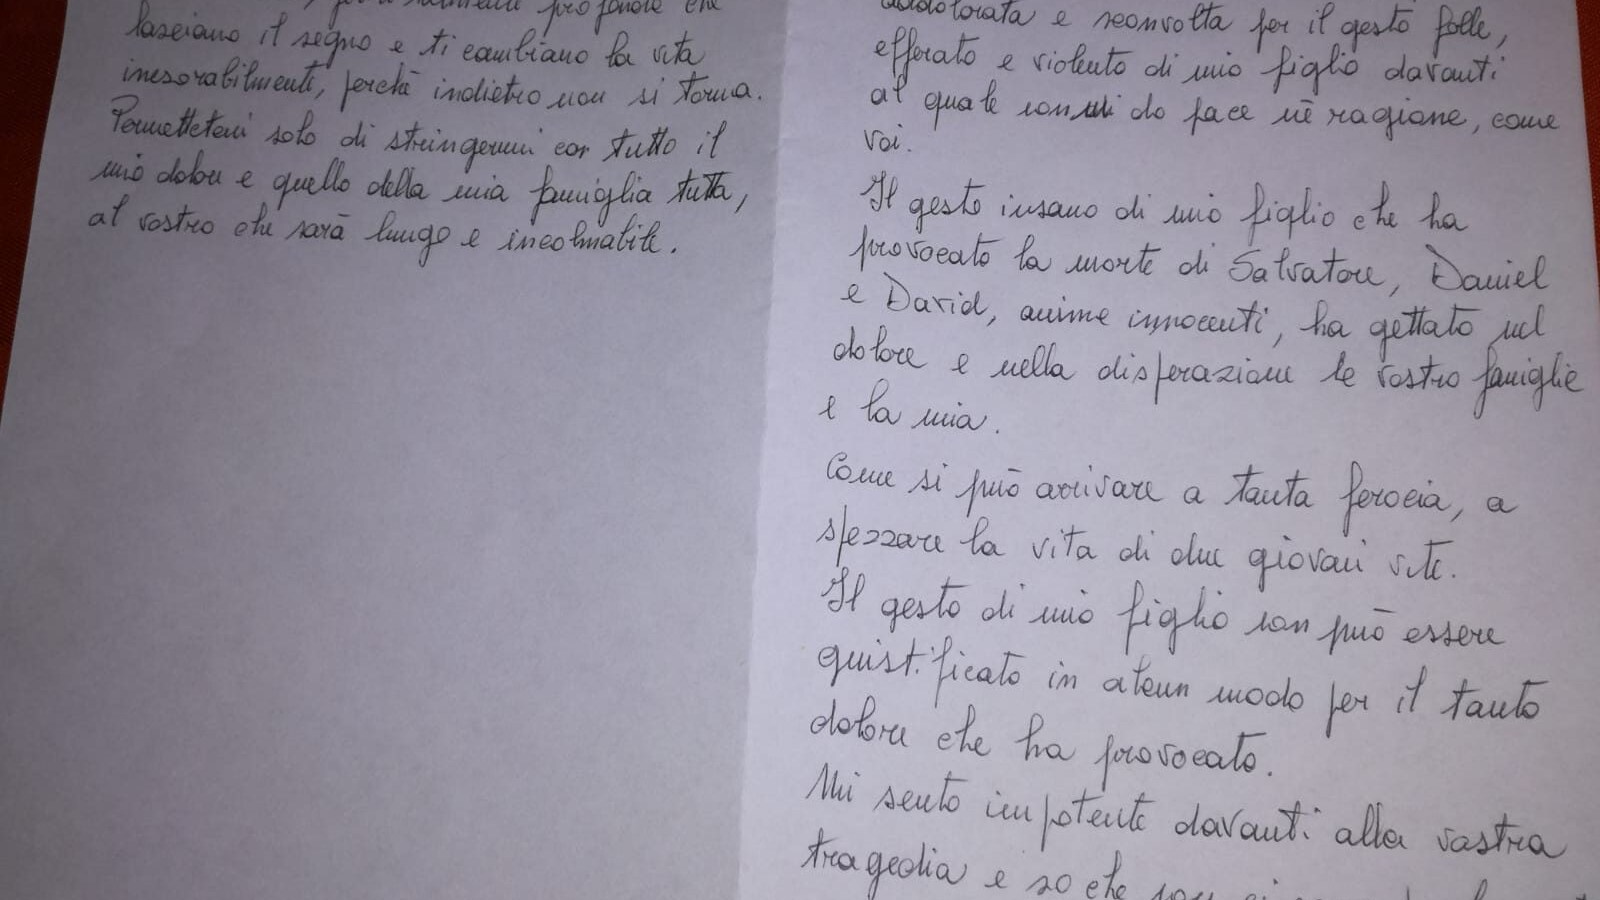 profonde che
lasciano il segno e ti cambiano la vita
inesorabilmente, perchè indietro non si torna.
Permettetemi solo di stringermi con tutto il
mio dolore e quello della mia famiglia tutta,
al vostro che sarà lungo e incolmabile.
addolorata e sconvolta per il gesto folle,
efferato e violento di mio figlio davanti
al quale non mi do pace nè ragione, come
voi.
Il gesto insano di mio figlio che ha
provocato la morte di Salvatore, Daniel
e David, anime innocenti, ha gettato nel
dolore e nella disperazione le vostre famiglie
e la mia.
Come si può arrivare a tanta ferocia, a
spezzare la vita di due giovani vite.
Il gesto di mio figlio non può essere
guistificato in alcun modo per il tanto
dolore che ha provocato.
Mi sento impotente davanti alla vostra
tragedia e so che non ci